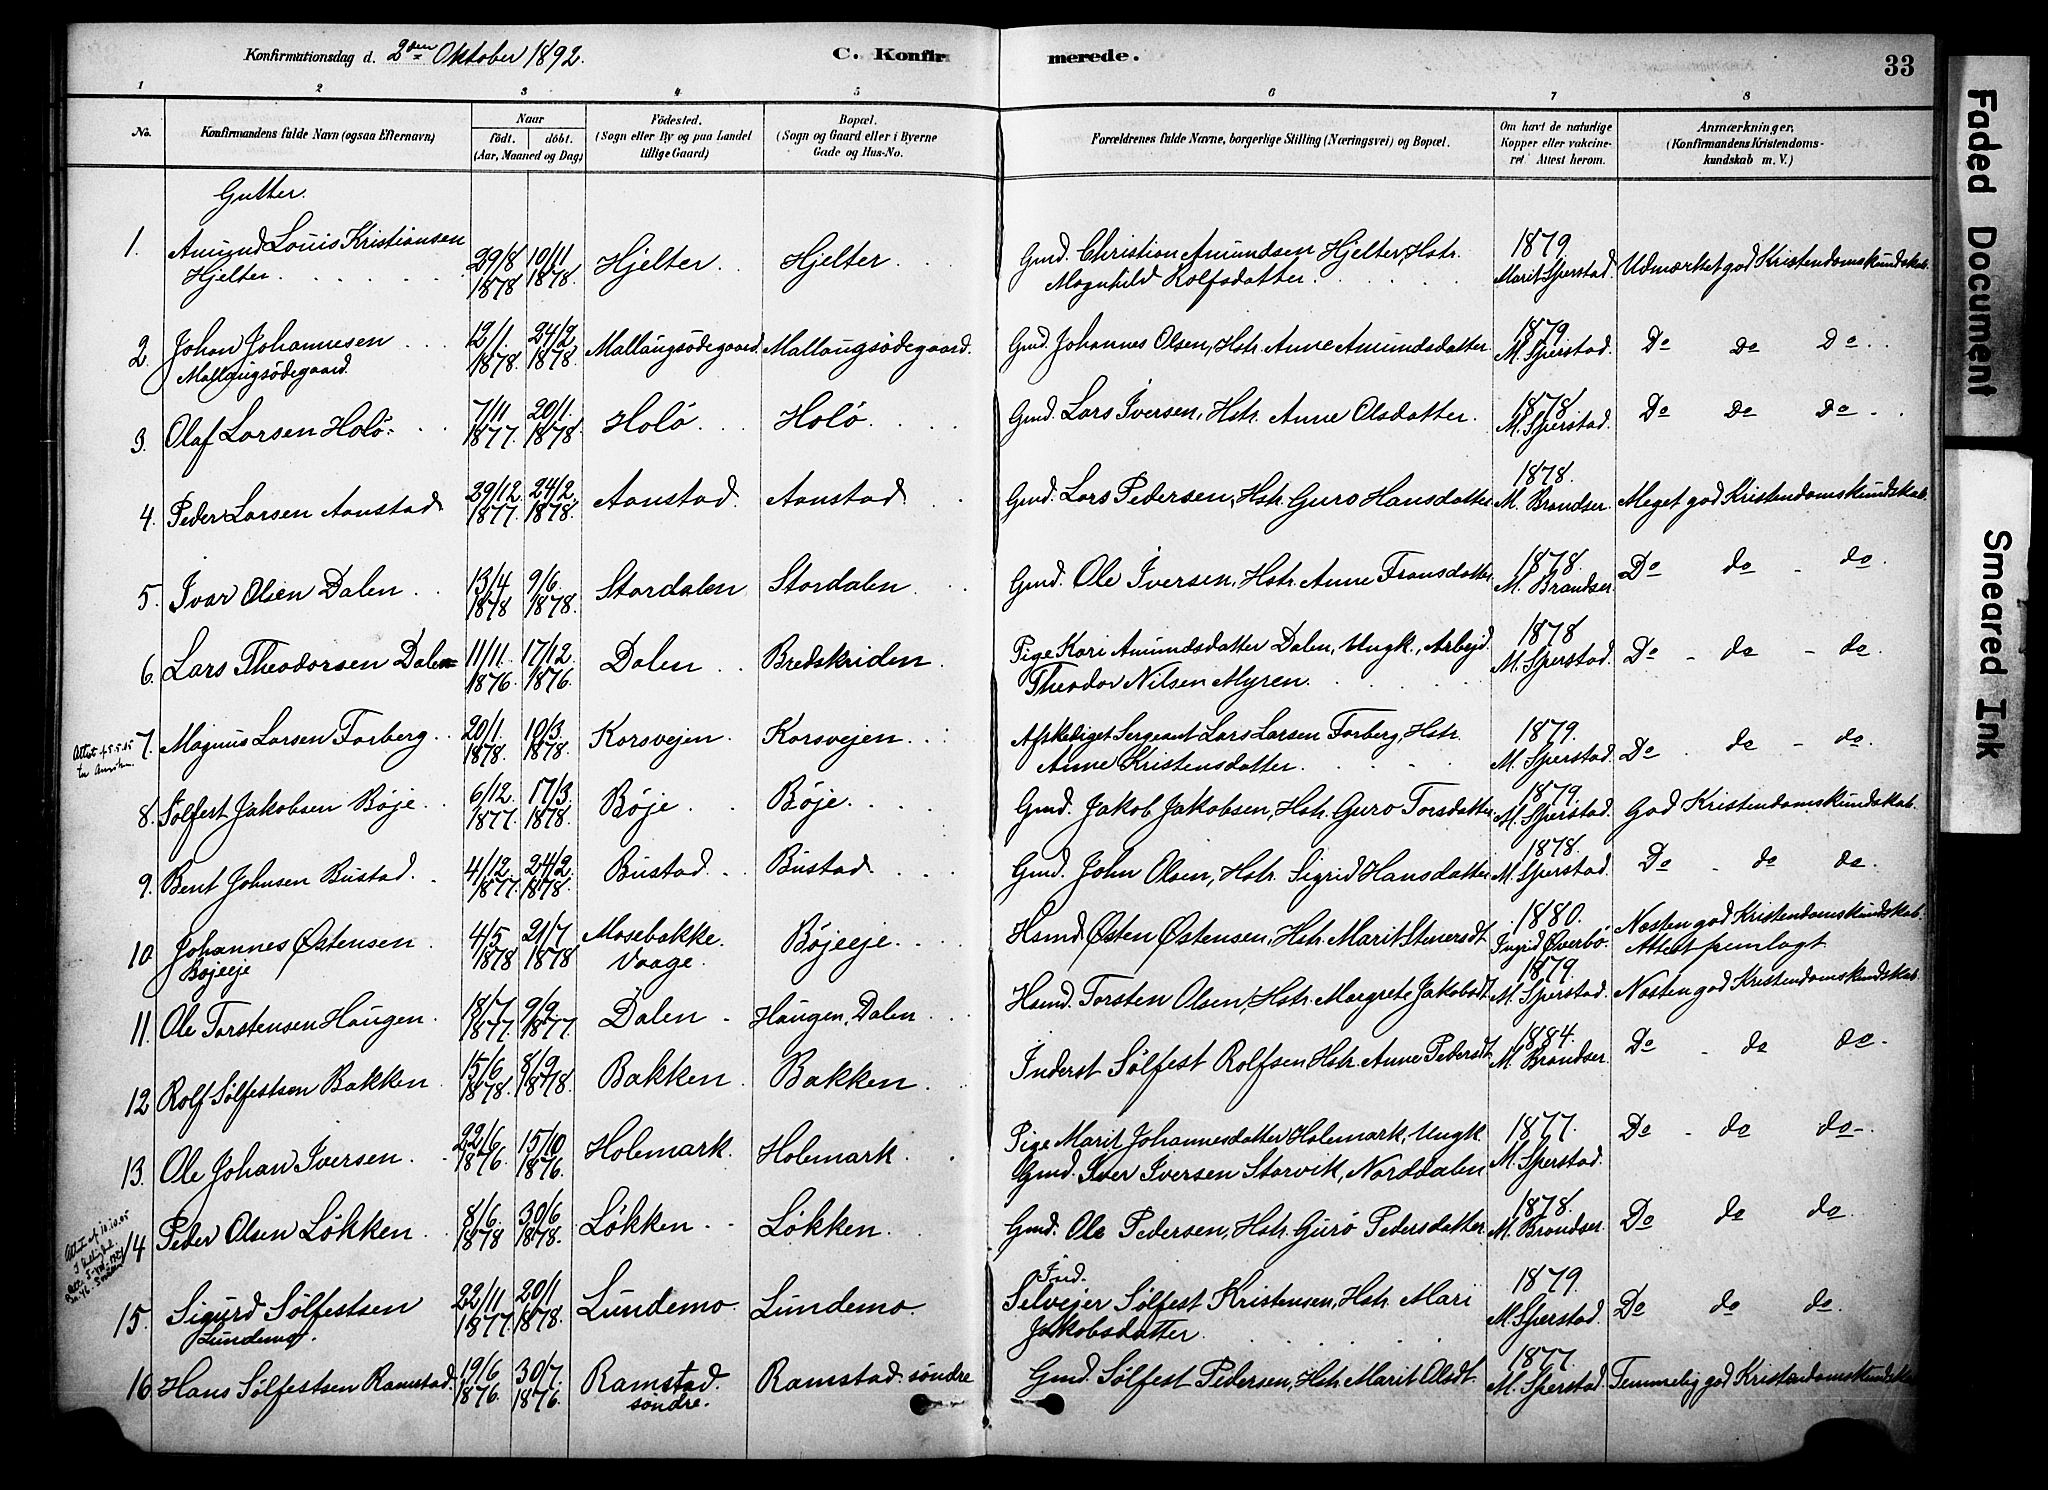 Konfirmationsdag d. 2den Oktober 1892.
C. Konfirmerede.
33
1 2 3 4 5 6 7 8
No.
Konfirmandens fulde Navn (ogsaa Efternavn)
Naar
födt. döbt.
(Aar, Maaned og Dag)
Födested.
(Sogn eller By og paa Landet
tillige Gaard)
Bopæl.
(Sogn og Gaard eller i Byerne
Gade og Hus-No.
Forældrenes fulde Navne, borgerlige Stilling (Næringsvei) og Bopæl.
Om havt de naturlige
Kopper eller vakcine-
ret. Attest herom.
Anmærkninger.
(Konfirmandens Kristendoms-
kundskab m. V.)
Gutter.
1. Amund Louis Kristiansen Hjelter 29/8 1878 10/11 1878. Hjelter Hjelter Gmd. Christian Amundsen Hjelter, Hstr. Magnhild Rolfsdatter. 1879. Marit Sperstad. Udmærket god Kristendomskundskab.
2. Johan Johannesen Mallaugsödegaard. 12/1. 1878. 24/2 1878. Mallaugsödegaard. Mallaugsödegaard. Gmd. Johannes Olsen, Hstr. Anne Amundsdatter. 1879. M. Sperstad. Do Do Do
3. Olaf Larsen Holö. 7/11 1877. 20/1. 1878. Holö Holö. Gmd. Lars Iversen, Hstr. Anne Olsdatter. 1878. M. Sperstad. Do Do Do
4. Peder Larsen Aanstad 29/12 1877. 24/2 1878. Aanstad. Aanstad Gmd. Lars Pedersen, Hstr. Guro Hansdatter 1878. M. Brandser. Meget god Kristendomskundskab.
5. Ivar Olsen Dalen 13/4 1878 9/6. 1878. Stordalen Stordalen Gmd. Ole Iversen, Hstr. Anne Fransdatter. 1878. M. Brandser. Do do do
6. Lars Theodorsen Dalen 11/11. 1876. 17/12. 1876. Dalen Bredskriden Pige Kari Amundsdatter Dalen, Ungk., Arbejd. Theodor Nilsen Myren. 1878 M. Sperstad. Do do do
Attest 15.5.05
7. Magnus Larsen Forberg 20/1. 1878. 10/3. 1878. Korsvejen Korsvejen Afskediget Sergeant Lars Larsen Forberg, Hstr. Anne Kristensdatter. 1879. M. Sperstad. Do do do
8. Sölfest Jakobsen Böje 6/12. 1877. 17/3 1878. Böje Böje Gmd. Jakob Jakobsen, Hstr. Guro Torsdatter. 1879. M. Sperstad. God Kristendomskundskab.
9. Bent Johnsen Bustad. 4/12. 1877. 24/2. 1878. Bustad Bustad Gmd. John Olsen, Hstr. Sigrid Hansdatter 1878. M. Sperstad. Do do do.
10. Johannes Østensen Böjeeje 4/5 1878 21/7 1878 Mosebakke. Vaage. Böjeeje Hsmd. Østen Østensen, Hstr. Marit Stenersdt. 1880. Ingrid Øverbö. Næsten god Kristendomskundskab. Attest fremlagt
11. Ole Torstensen Haugen. 18/7 1877. 9/9 1877. Dalen Haugen, Dalen Hsmd. Torsten Olsen, Hstr. Margrete Jakobsdt. 1879. M. Sperstad. Næsten god Kristendomskundskab.
12. Rolf Sölfestsen Bakken 15/6 1878. 8/9 1878. Bakken Bakken Inderst Sölfest Rolfsen Hstr. Anne Pedersdt. 1884. M. Brandser. Do do do
13. Ole Johan Iversen 22/6 1876. 15/10 1876. Holemark. Holemark Pige Marit Johannesdatter Holemark, Ungk. Gmd. Iver Iversen Storvik, Norddalen 1877. M. Sperstad. Do do do
Attest af 10.10.05
14 Peder Olsen Lökken. 8/6. 1878 30/6 1878. Lökken Lökken. Gmd. Ole Pedersen, Hstr. Guro Pedersdatter 1878. M. Brandser. Do do do
15. Sigurd Sölfestsen Lundemo. 22/11 1877. 20/1 1878. Lundemo. Lundemo Ind. Selvejer Sölfest Kristensen, Hstr. Mari Jakobsdatter 1879 M. Sperstad. Do do do
16. Hans Sölfestsen Ramstad. 19/6 1876. 30/7. 1876. Ramstad. söndre. Ramstad söndre Gmd. Sölfest Pedersen, Hstr. Marit Olsdt. 1877 M. Sperstad. Temmelig god Kristendomskundskab
Faded Document
Smeared Ink